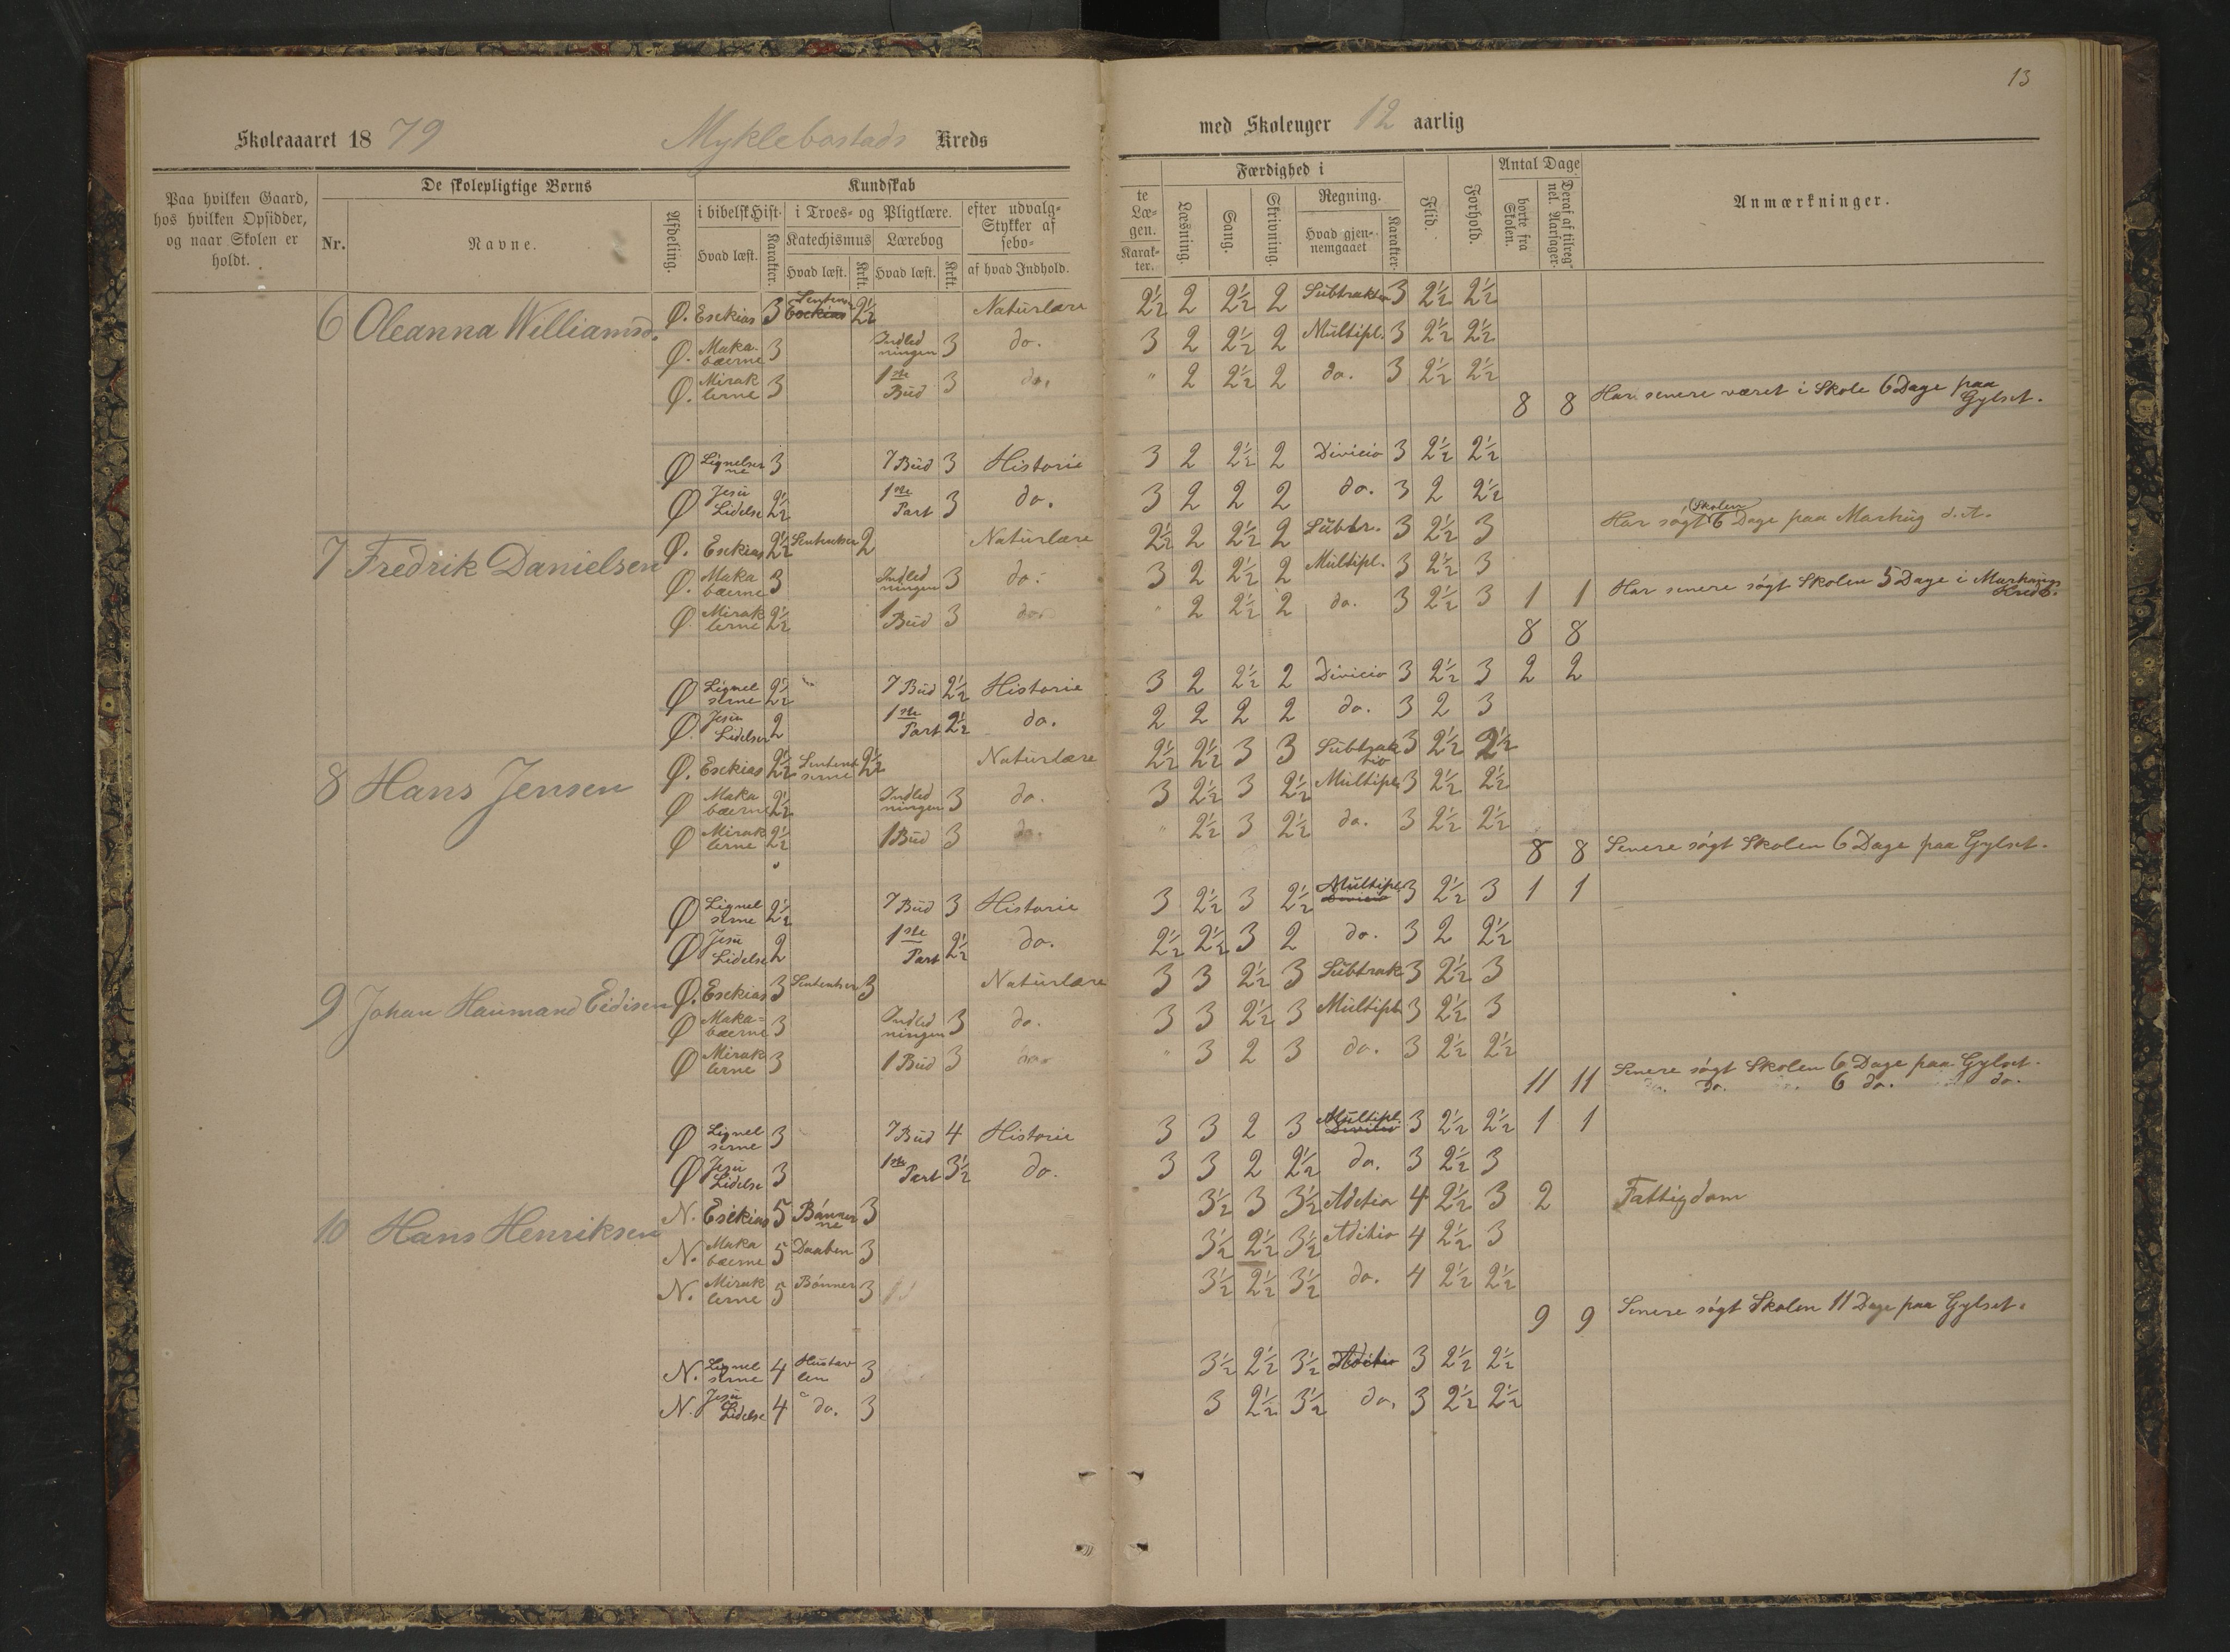 13
Skoleaaaret 1879 Myklebostads Kreds med Skoleuger 12 aarlig
Paa hvilken Gaard, hos hvilken Opsidder, og naar Skolen er holdt.
De skolepligtige Børns
Nr. Navne. Afdeling.
Kundskab
i bibelsk Hist. i Troes- og Pligtlære. efter udvalg- te Læ-
Stykker af gen.
sebo-
Katechismus Lærebog
Hvad læst. Karakter. Hvad læst. Krkt. Hvad læst. Krkt. af hvad Indhold. Karak-ter.
Færdighed i
Læsning. Sang. Skrivning. Regning. Hvad gjen-nemgaaet Karakter.
Flid. Forhold.
Antal Dage borte fra Skolen. Deraf af tilreg-nel. Aarsager.
Anmærkninger.
6 Oleanna Williamsd. Ø. Esekias 3 Sentenser Esekias 2½ Naturlære 2½ 2 2½ 2 Subtraktio 3 2½ 2½
Ø. Makabæerne 3 Indledningen 3 do. 3 2 2½ 2 Multipl. 3 2½ 2½
Ø. Miraklerne 3 1ste Bud 3 do. " 2 2½ 2 do. 3 2½ 2½
8 8 Har senere været i Skole 6 Dage paa Gylset.
Ø Lignelserne 3 7 Bud 3 Historie 3 2 2½ 2 Divicio 3 2½ 2½
Ø Jesu Lidelse 2½ 1ste Part 3 do. 3 2 2 2 do. 3 2 2½
7 Fredrik Danielsen Ø. Esekias 2½ Sentenser 2 Naturlære 2½ 2 2½ 2 Subtr. 3 2½ 3 Har søgt Skolen 6 Dage paa Marhug d. A.
Ø. Makabæerne 3 Indledningen 3 do. 3 2 2½ 2 Multipl. 3 2½ 3
Ø Miraklerne 2½ 1 Bud 3 do. " 2 2½ 2 do. 3 2½ 3 1 1 Har senere søgt Skolen 5 Dage i Marhugs Kreds.
8 8
Ø Lignelserne 2½ 7 Bud 2½ Historie 3 2 2½ 2 Divicio 3 2½ 3 2 2
Ø. Jesu Lidelser 2 1ste Part 2½ do. 2 2 2 2 do. 3 2 3
8 Hans Jensen Ø. Esekias 2½ Sentenserne 2½ Naturlære 2½ 2½ 3 3 Subtraktio 3 2½ 2½
Ø Makabæerne 2½ Indledningen 3 do. 3 2½ 3 2½ Multipl 3 2½ 2½
Ø Miraklerne 2½ 1 Bud 3 do. " 2½ 3 2½ do. 3 2½ 2½
8 8 Senere søgt Skolen 6 Dage paa Gylset.
Ø Lignelserne 2½ 7 Bud 3 Historie 3 2½ 3 2½ Multipl Divicio 3 2½ 3 1 1
Ø Jesu Lidelse 2 1ste Part 2½ do. 2½ 2½ 3 2 do. 3 2 2½
9 Johan Haumand Eidisen Ø. Esekias 3 Sentenser 3 Naturlære 3 3 2½ 3 Subtrak 3 2½ 3
Ø Makabæerne 3 Indledningen 3 do. 3 3 2½ 3 Multipl 3 2½ 3
Ø Miraklerne 3 1 Bud 3 do. " 3 2 3 do. 3 2½ 2½
11 11 Senere søgt Skolen 6 Dage paa Gylset.
do. do. 6 do. do.
Ø Lignelserne 3 7 Bud 4 Historie 3 3 2 3 Multipl. Divitio 3 2½ 2½ 1 1
Ø Jesu Lidelse 3 1ste Part 3½ do. 3 3 2 2½ do. 3 2½ 3
10 Hans Henriksen N. Esekias 5 Bønnerne 3 3½ 3 3½ Adetio 4 2½ 3 2 Fattigdom
N. Makabæerne 5 Daaben 3 3½ 2½ 3½ Aditio 4 2½ 3
N. Miraklerne 5 Bønner 3 3½ 2½ 3½ do. 4 2½ 2½
9 9 Senere søgt Skolen 11 Dage paa Gylset.
N. Lignelserne 4 Hustavlen 3 3½ 2½ 3½ Aditio 3 2½ 2½
N. Jesu Lidelse 4 do. 3 3 2½ 3½ do. 3 2½ 2½